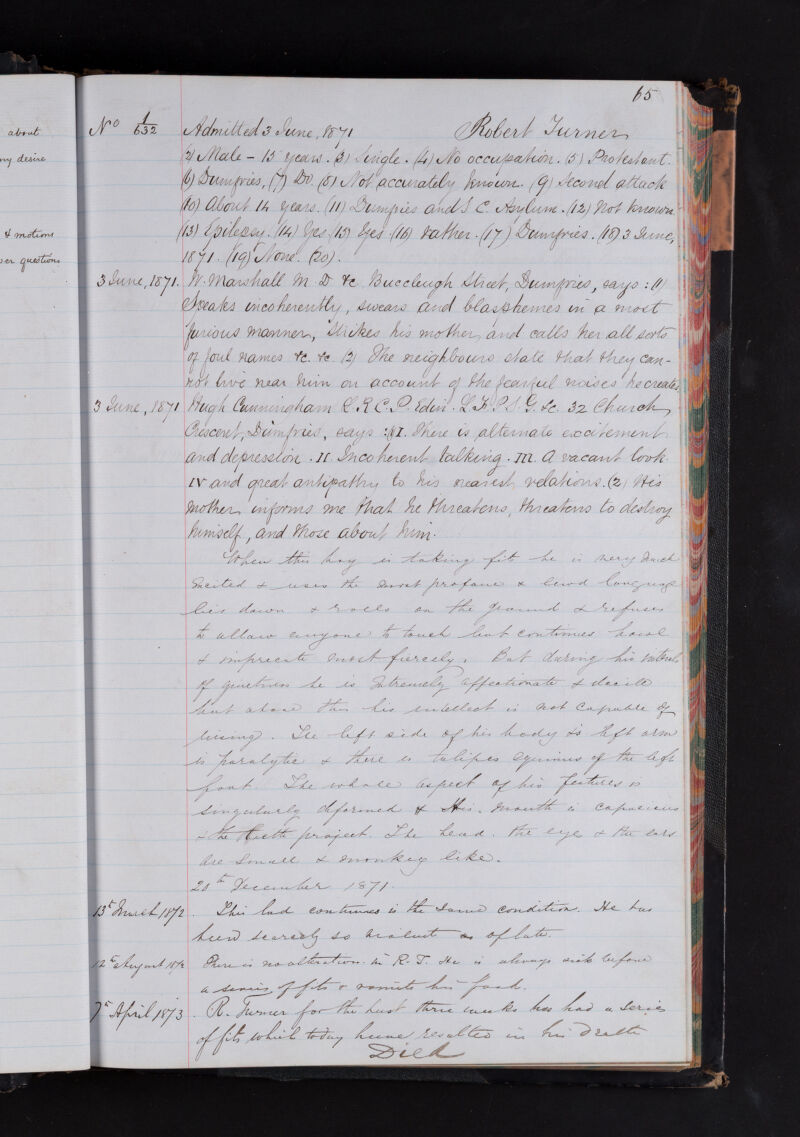 about
my desire
& motions
per questions
65
No 1/632 Admitted 3 June, 1871 Robert Turner
(2) Male - 15 years. (3) Single. (4) No occupation. (5) Protestant.
(6) Dumfries, (7) Do. (8) Not accurately known. (9) Second attack
(10) About 14 years. (11) Dumfries and S. C. Asylum. (12) Not known
(13) Epilepsy. (14) Yes (15) Yes (16) Father. (17) Dumfries. (18) 3 June,
1871. (19) None. (20).
3 June, 1871. W. Marshall M. D. &c. Buccleugh Street, Dumfries, says: (1)
Speaks incoherently, swears and blasphemes in a most
furious manner, strikes his mother, and calls her all sorts
of foul names &c. &c. (2) The neighbours state that they can-
not live near him on account of the fearful noises he creates.
3 June, 1871 Hugh Cunningham L.R.C.P. Edin. L.F.P.S.G. &c. 32 Church
Crescent, Dumfries, says: (1) I. There is alternate excitement
and depression. II. Incoherent talking. III. A vacant look.
IV and great antipathy to his nearest relations. (2) His
mother informs me that he threatens, threatens to destroy
himself, and those about him.
When this boy is taking fits he is very much
excited & uses the most profane & lewd language
lies down & rolls on the ground & refuses
to allow anyone to touch but continues howl
& imprecate most fiercely. But during his intervals
of quietness he is extremely affectionate & docile
but above this his intellect is not capable of
rising. The left side of his body & left arm
is paralytic & there is talipes equinus of the left
foot. The whole aspect of his features is
singularly deformed & His mouth is capacious
& the teeth project. The head, the eye & the ears
are small & monkey like.
20th December 1871.
13th March 1872. This lad continues in the same condition. He has
been scarcely so violent as of late.
12th August 1872 There is no alteration in R. T. He is always sick before
a series of fits & vomits his food.
7th April 1873. R. Turner for the last three weeks has had a series
of fits which today have resulted in his Death
Died